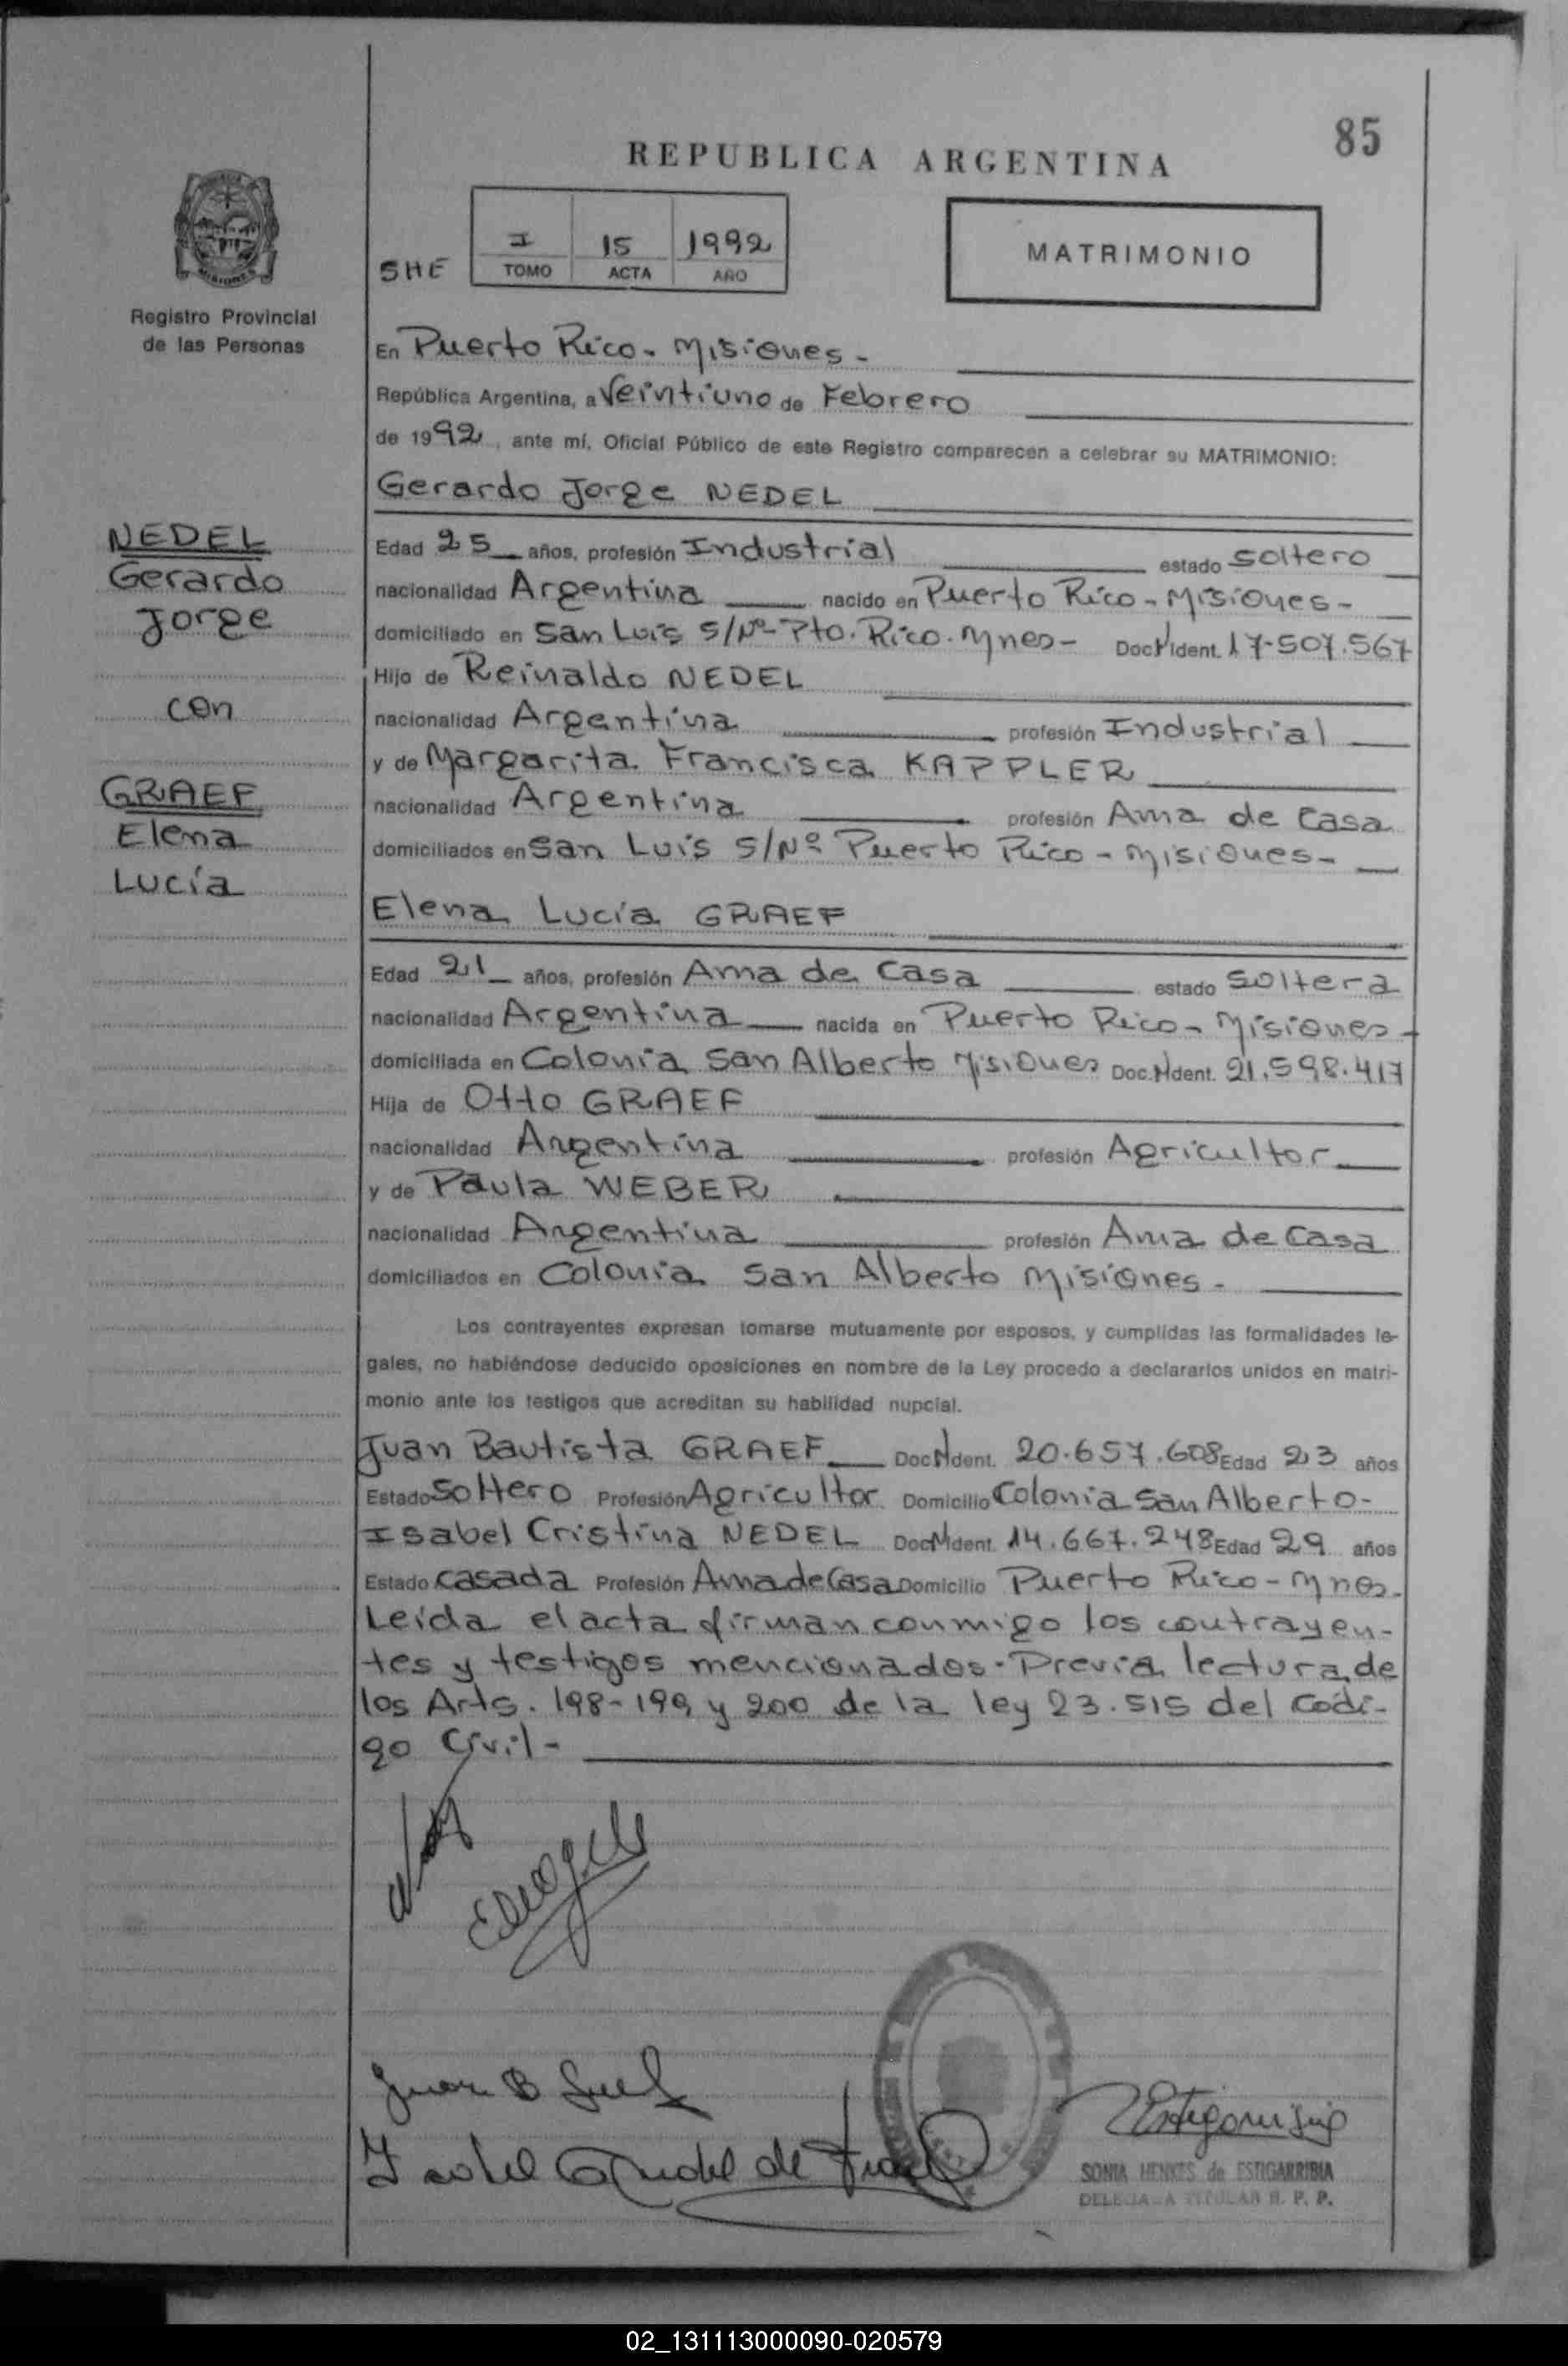 85
REPUBLICA ARGENTINA
SHE
I 15 1992
TOMO ACTA AÑO
MATRIMONIO
Registro Provincial
de las Personas
En Puerto Rico - Misiones -
República Argentina, a Veintiuno de Febrero
de 1992, ante mí, Oficial Público de este Registro comparecen a celebrar su MATRIMONIO:
Gerardo Jorge NEDEL
NEDEL
Gerardo
Jorge
con
GRAEF
Elena
Lucía
Edad 25 años, profesión Industrial estado soltero
nacionalidad Argentina nacido en Puerto Rico - Misiones -
domiciliado en San Luis S/Nº - Pto. Rico. Mnes - Doc. N Ident. 17.507.567
Hijo de Reinaldo NEDEL
nacionalidad Argentina profesión Industrial
y de Margarita Francisca KAPPLER
nacionalidad Argentina profesión Ama de Casa
domiciliados en San Luis S/Nº Puerto Rico - Misiones -
Elena Lucía GRAEF
Edad 21 años, profesión Ama de Casa estado soltera
nacionalidad Argentina nacida en Puerto Rico - Misiones -
domiciliada en Colonia San Alberto Misiones Doc. N Ident. 21.598.417
Hija de Otto GRAEF
nacionalidad Argentina profesión Agricultor
y de Paula WEBER
nacionalidad Argentina profesión Ama de Casa
domiciliados en Colonia San Alberto Misiones -
Los contrayentes expresan tomarse mutuamente por esposos, y cumplidas las formalidades le-
gales, no habiéndose deducido oposiciones en nombre de la Ley procedo a declararlos unidos en matri-
monio ante los testigos que acreditan su habilidad nupcial.
Juan Bautista GRAEF Doc. N Ident. 20.657.608 Edad 23 años
Estado Soltero Profesión Agricultor Domicilio Colonia San Alberto -
Isabel Cristina NEDEL Doc. N Ident. 14.667.248 Edad 29 años
Estado Casada Profesión Ama de Casa Domicilio Puerto Rico - Mnes -
Leída el acta firman conmigo los contrayen-
tes y testigos mencionados - Previa lectura de
los Arts. 198-199 y 200 de la ley 23.515 del Codi-
go Civil -
Juan B Graef
SONIA HENKES de ESTIGARRIBIA
DELEGADA TITULAR R. P. P.
02_131113000090-020579